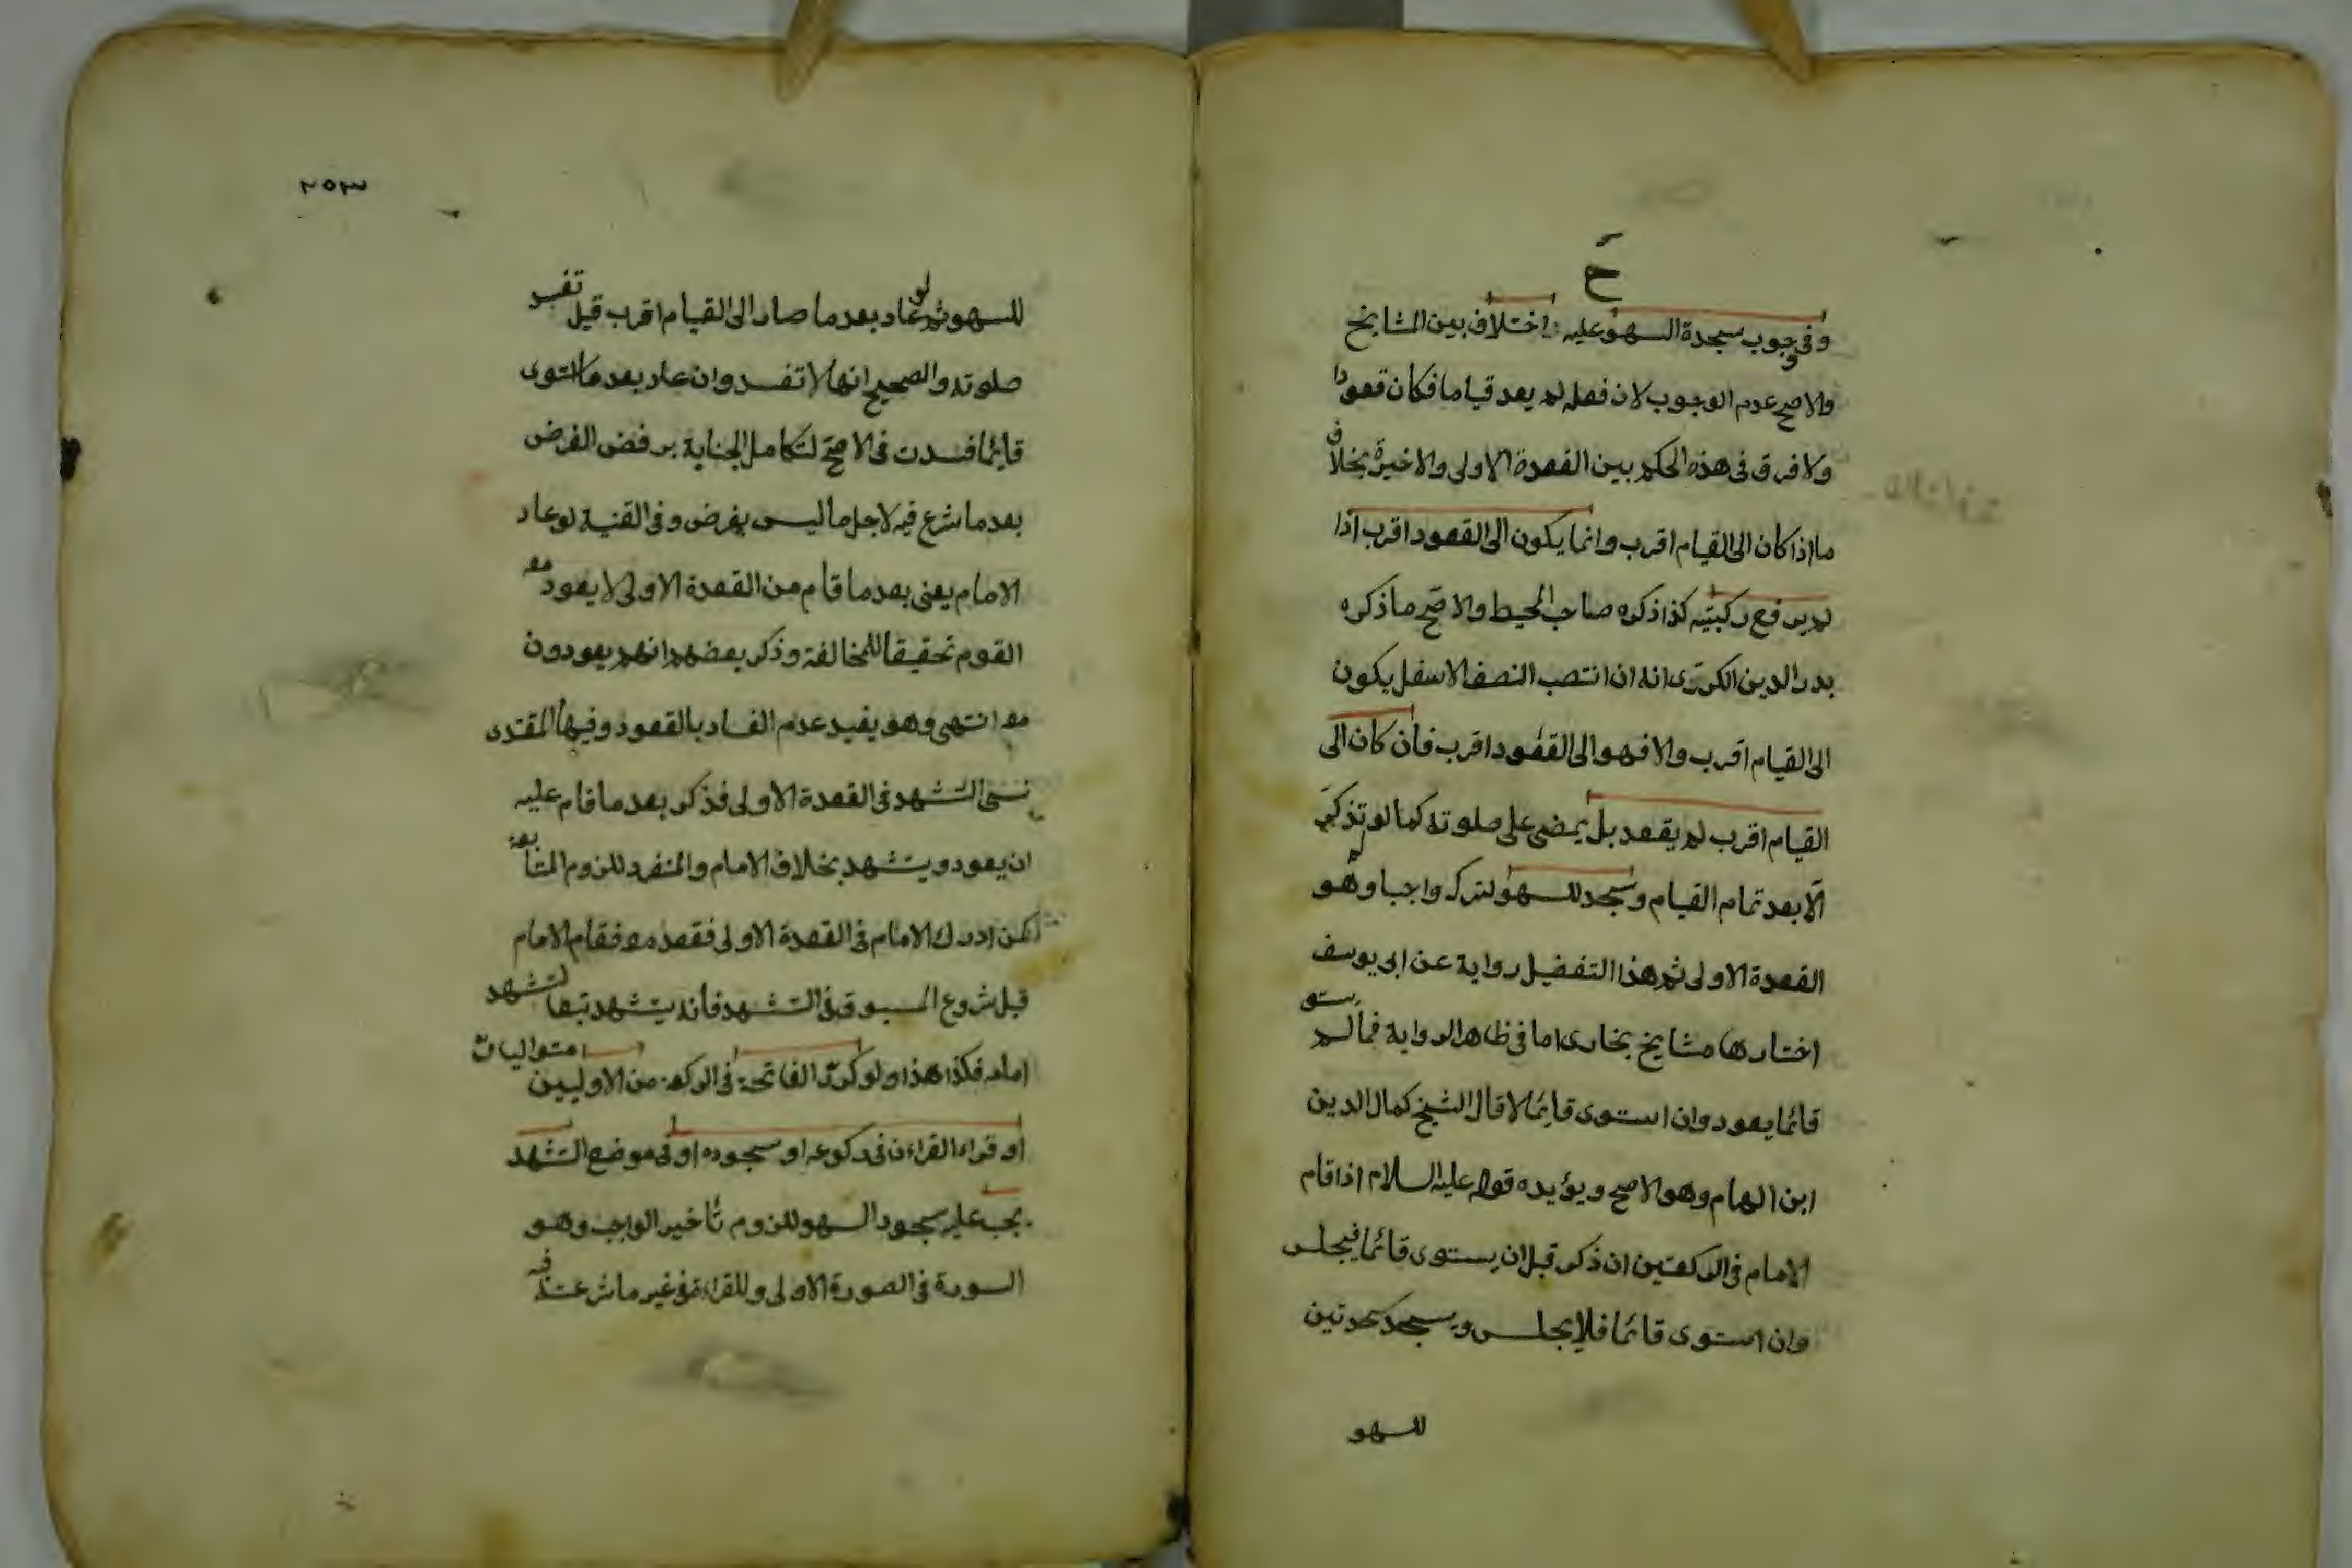 ح
وفى وجوب سجدة السهو عليه اختلاف بين المشايخ
والاصح عدم الوجوب لان فعله لم يعد قياما فكان قعودا
ولا فرق فى هذه الحكم بين القعدة الاولى والاخيرة بخلاف
ما اذا كان الى القيام اقرب وانما يكون الى القعود اقرب اذا
لم يرفع ركبتيه كذا ذكره صاحب المحيط والاصح ما ذكره
بدر الدين الكردرى انه ان انتصب النصف الاسفل يكون
الى القيام اقرب والا فهو الى القعود اقرب فان كان الى
القيام اقرب لم يقعد بل يمضى على صلوته كما لو تذكر
الا بعد تمام القيام وسجد للسهو لتركه واجبا وهو
القعدة الاولى ثم هذا التفضيل رواية عن ابى يوسف
اختارها مشايخ بخارى اما فى ظاهر الرواية فما لم يستو
قائما يعود وان استوى قائما لا قال الشيخ كمال الدين
ابن الهمام وهو الاصح ويؤيده قوله عليه السلام اذا قام
الامام فى الركعتين ان ذكر قبل ان يستوى قائما فيجلس
وان استوى قائما فلا يجلس ويسجد سجدتين
للسهو
٢٥٣
للسهو ثم لو عاد بعد ما صار الى القيام اقرب قيل تفسد
صلوته والصحيح انها لا تفسد وان عاد بعد ما استوى
قائما فسدت فى الاصح لتكامل الجناية برفض الفرض
بعد ما شرع فيه لاجل ما ليس بفرض وفى القنية لو عاد
الامام يعنى بعد ما قام من القعدة الاولى لا يعود معه
القوم تحقيقا للمخالفة وذكر بعضهم انهم يعودون
معه انتهى وهو يفيد عدم الفساد بالقعود وفيها المقتدى
نسى التشهد فى القعدة الاولى فذكر بعد ما قام عليه
ان يعود ويتشهد بخلاف الامام والمنفرد للزوم المتابعة
كمن ادرك الامام فى القعدة الاولى فقعد معه فقام الامام
قبل شروع المسبوق فى التشهد فانه يتشهد تبعا لتشهد
امامه فكذا هذا ولو كرر الفاتحة فى الركعة من الاوليين متواليات
او قراء القراءن فى ركوعه او سجوده او فى موضع التشهد
يجب عليه سجود السهو للزوم تأخير الواجب وهو
السورة فى الصورة الاولى وللقراءة فى غير ما شرعت فيه